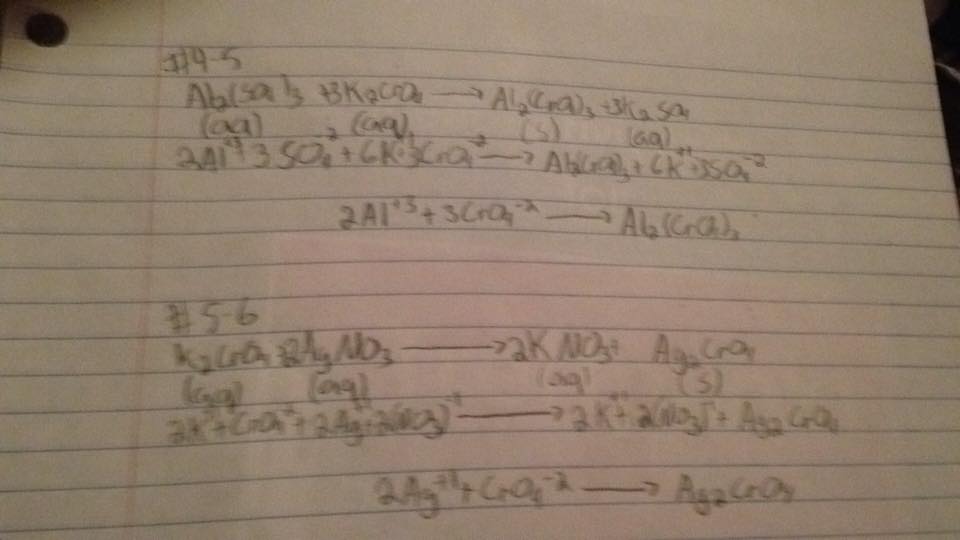 #4-5
Al₂(SO₄)₃ + 3K₂CrO₄ → Al₂(CrO₄)₃ + 3K₂SO₄
(aq) (aq) (s) (aq)
2Al⁺³ 3SO₄⁻² + 6K⁺ 3CrO₄⁻² → Al₂(CrO₄)₃ + 6K⁺¹ + 3SO₄⁻²
2Al⁺³ + 3CrO₄⁻² → Al₂(CrO₄)₃
#5-6
K₂CrO₄ + 2AgNO₃ → 2KNO₃ + Ag₂CrO₄
(aq) (aq) (aq) (s)
2K⁺¹ + CrO₄⁻² + 2Ag⁺¹ + 2(NO₃)⁻¹ → 2K⁺¹ + 2(NO₃)⁻¹ + Ag₂CrO₄
2Ag⁺¹ + CrO₄⁻² → Ag₂CrO₄